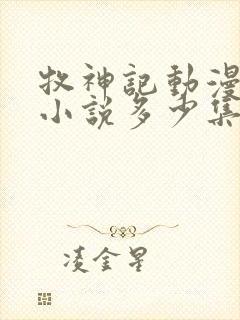 牧神記動漫
小說多少集
凌金星